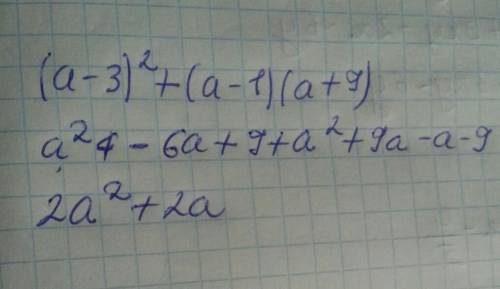 (a-3)²+(a-1)(a+9)
a² - 6a+9+a²+9a-a-9
2a²+2a